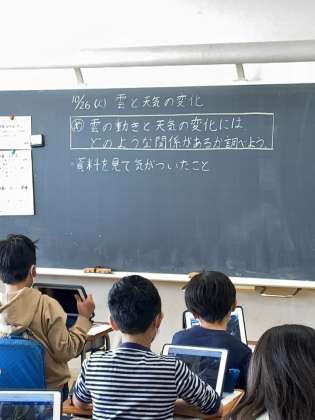 10/26(火) 雲と天気の変化
め 雲の動きと天気の変化には
どのような関係があるか調べよう。
・資料を見て気がついたこと